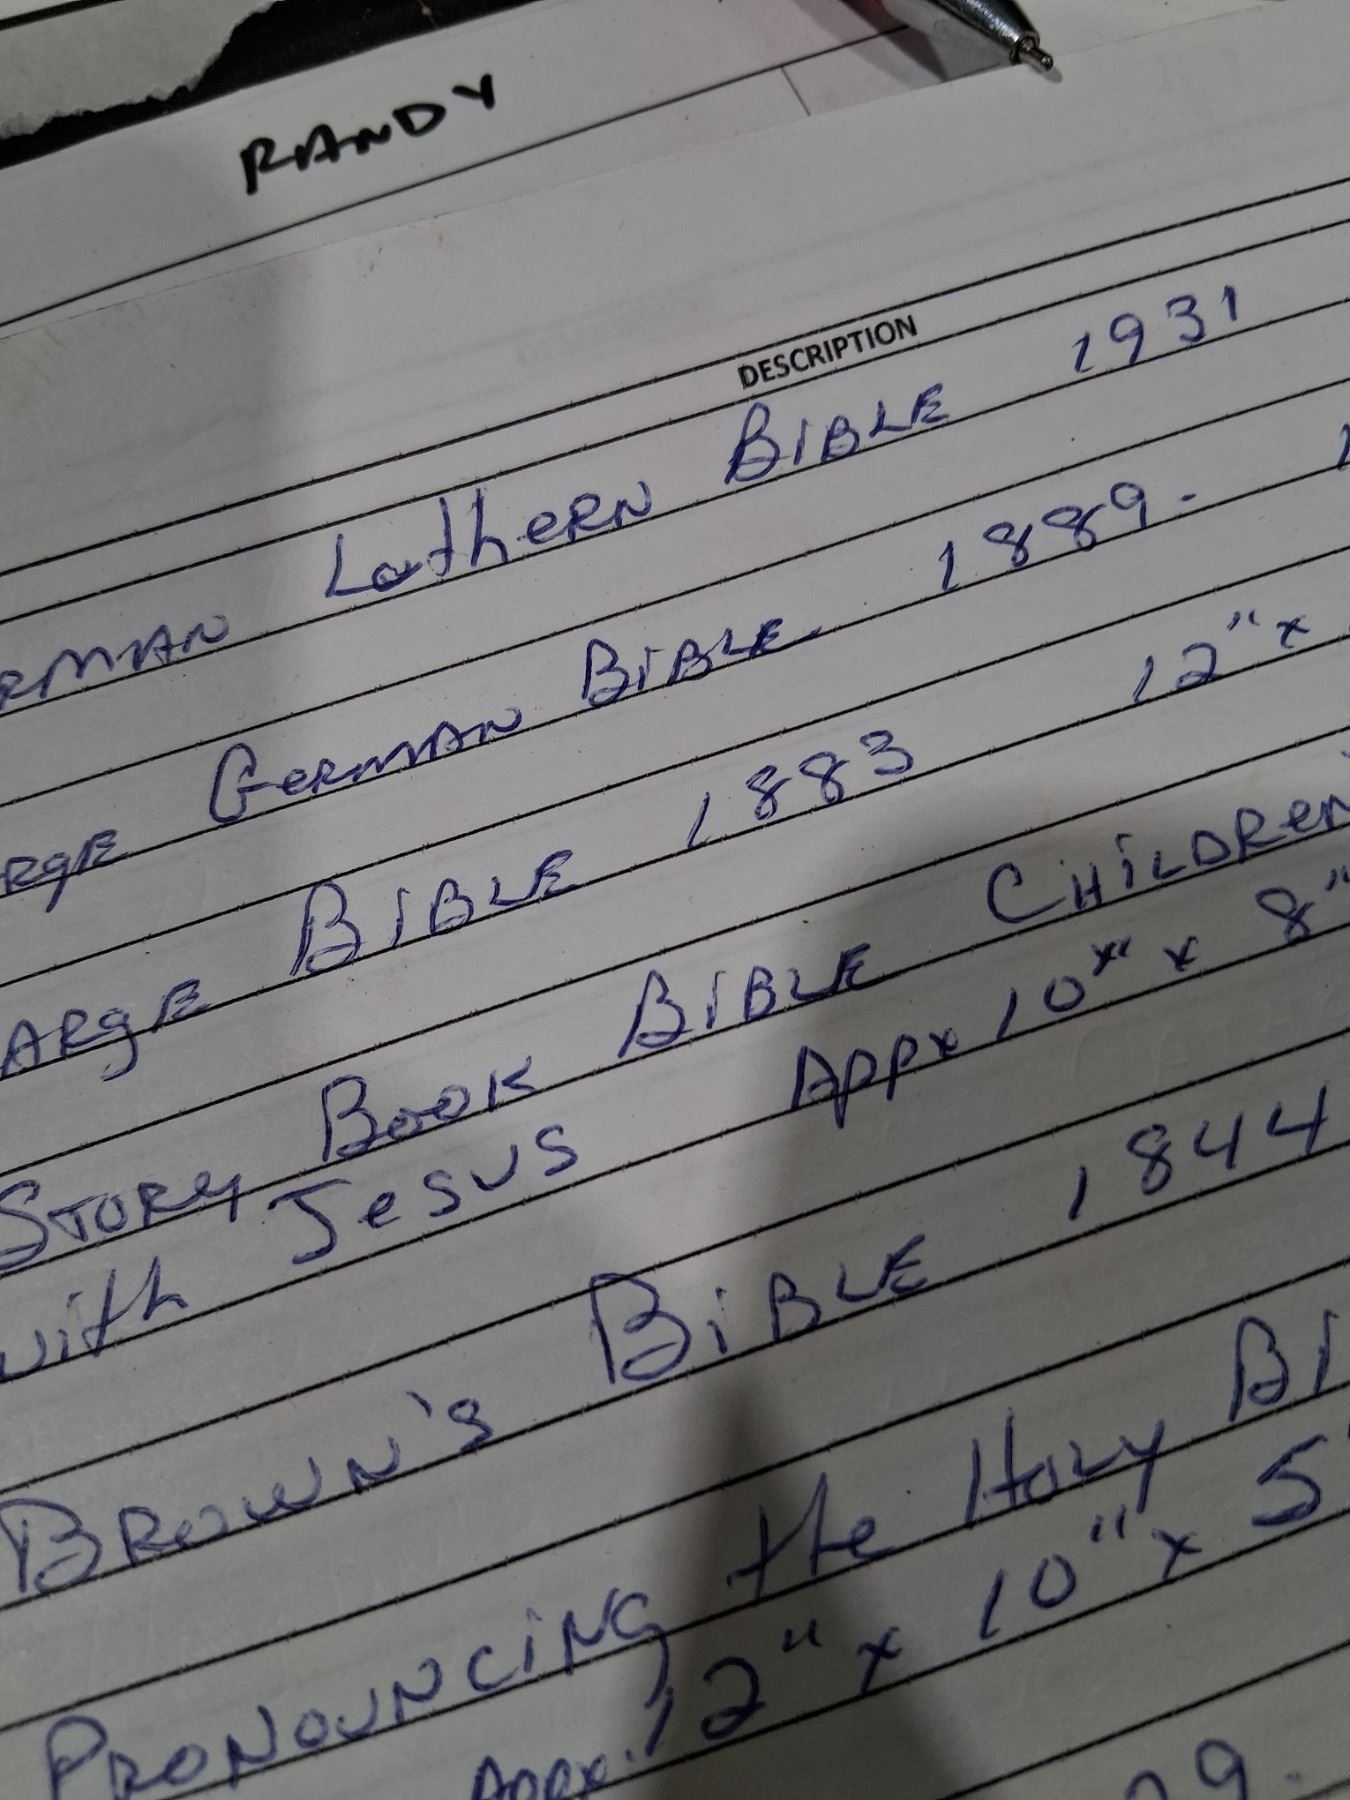 RANDY
DESCRIPTION
RMAN Luthern BIBLE 1931
RGE GERMAN BIBLE. 1889. 1
ARGE BIBLE 1883 12" x
STORY BOOK BIBLE CHILDREN
with JESUS Appx 10" x 8"
BROWN'S BIBLE 1844
PRONOUNCING the HOLY BI
Appx. 12" x 10" x 5
9.